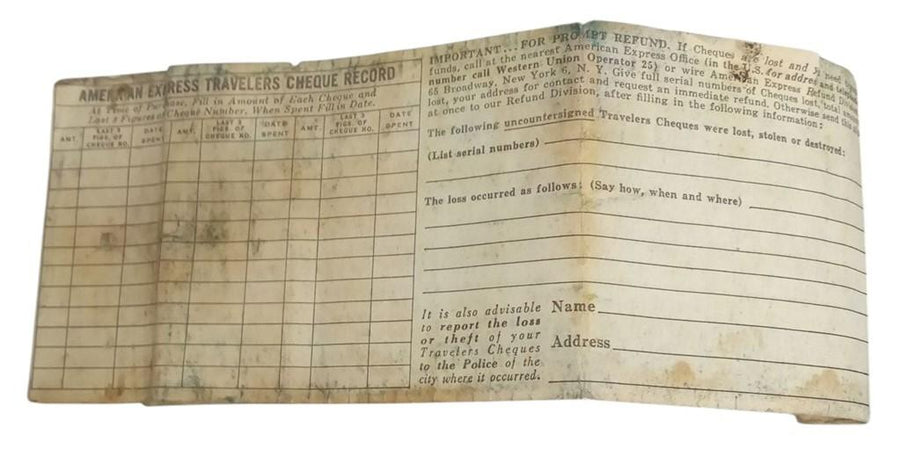 AMERICAN EXPRESS TRAVELERS CHEQUE RECORD
At Time of Purchase, Fill in Amount of Each Cheque and
Last 3 Figures of Cheque Number. When Spent Fill in Date.
AMT. LAST 3 FIGS. OF CHEQUE NO. DATE SPENT AMT. LAST 3 FIGS. OF CHEQUE NO. DATE SPENT AMT. LAST 3 FIGS. OF CHEQUE NO. DATE SPENT
IMPORTANT...FOR PROMPT REFUND. If Cheques are lost and you need
funds, call at the nearest American Express Office (in the U.S. for address and telephone
number call Western Union Operator 25) or wire American Express Refund Division
65 Broadway, New York 6, N. Y. Give full serial numbers of Cheques lost, total amount
lost, your address for contact and request an immediate refund. Otherwise send this
at once to our Refund Division, after filling in the following information:
The following uncountersigned Travelers Cheques were lost, stolen or destroyed:
(List serial numbers)
The loss occurred as follows: (Say how, when and where)
It is also advisable
to report the loss
or theft of your
Travelers Cheques
to the Police of the
city where it occurred.
Name
Address